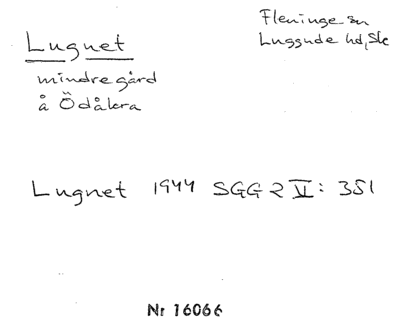 Fleninge sn
Luggude hd, Sk
Lugnet
mindre gård
å Ödåkra
Lugnet 1944 SGG 2 V: 351
Nr 16066